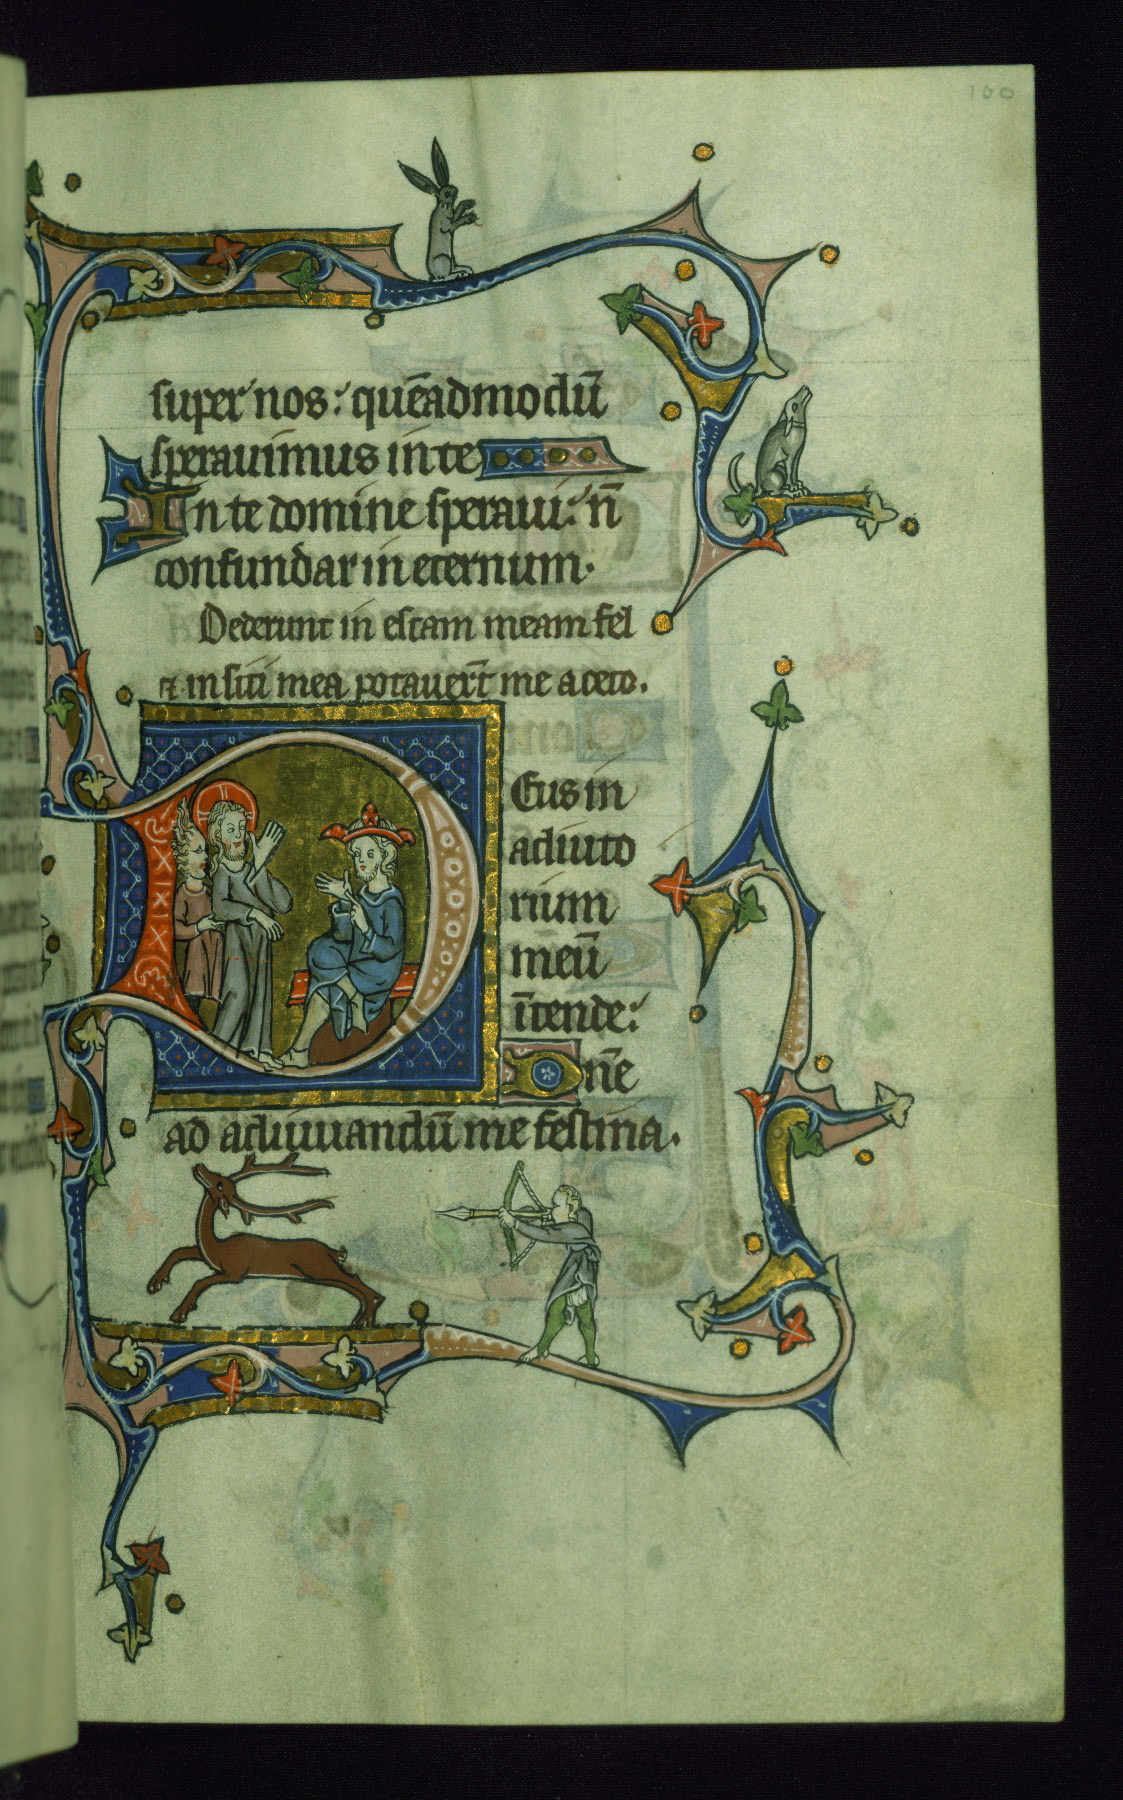 100
super nos: quēadmodū
speravimus in te
In te domine speravi: n̄
confundar in eternum.
Dederunt in escam meam fel
et in siti mea potauer̄t me aceto.
Deus in
adiuto
rium
meū
ītende:
Dn̄e
ad adiuuandū me festina.